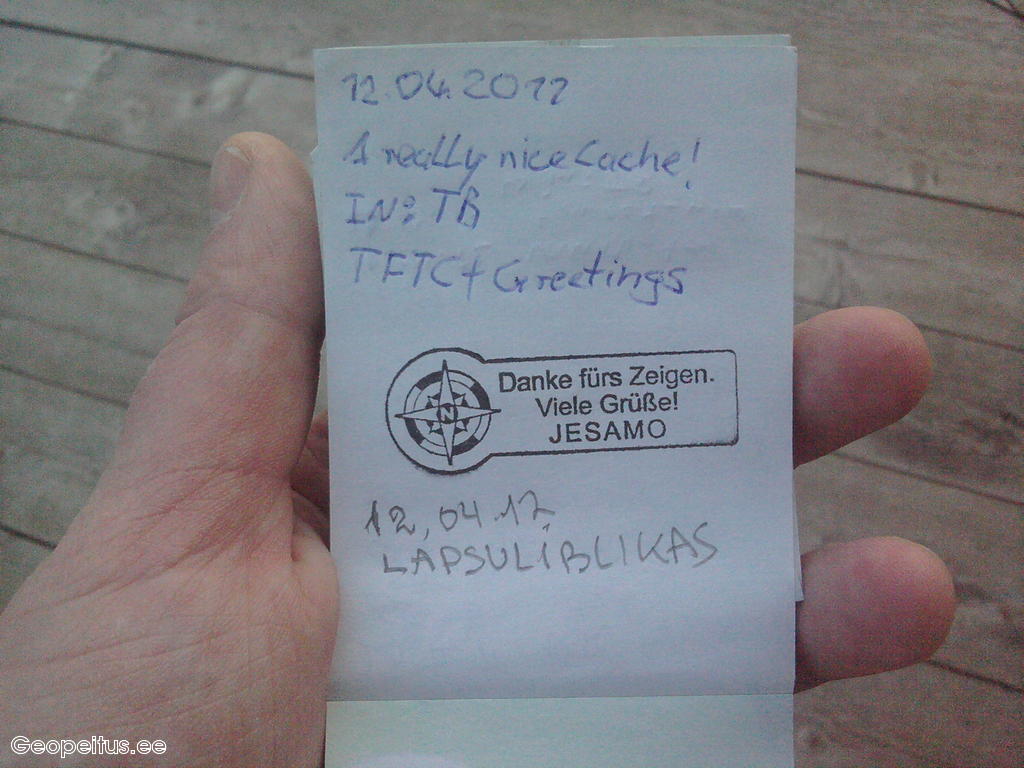 12.04.2012
1 really nice Cache!
IN: TB
TFTC + Greetings
Danke fürs Zeigen.
Viele Grüße!
JESAMO
N
12,04.12
LAPSULIBLIKAS
Geopeitus.ee